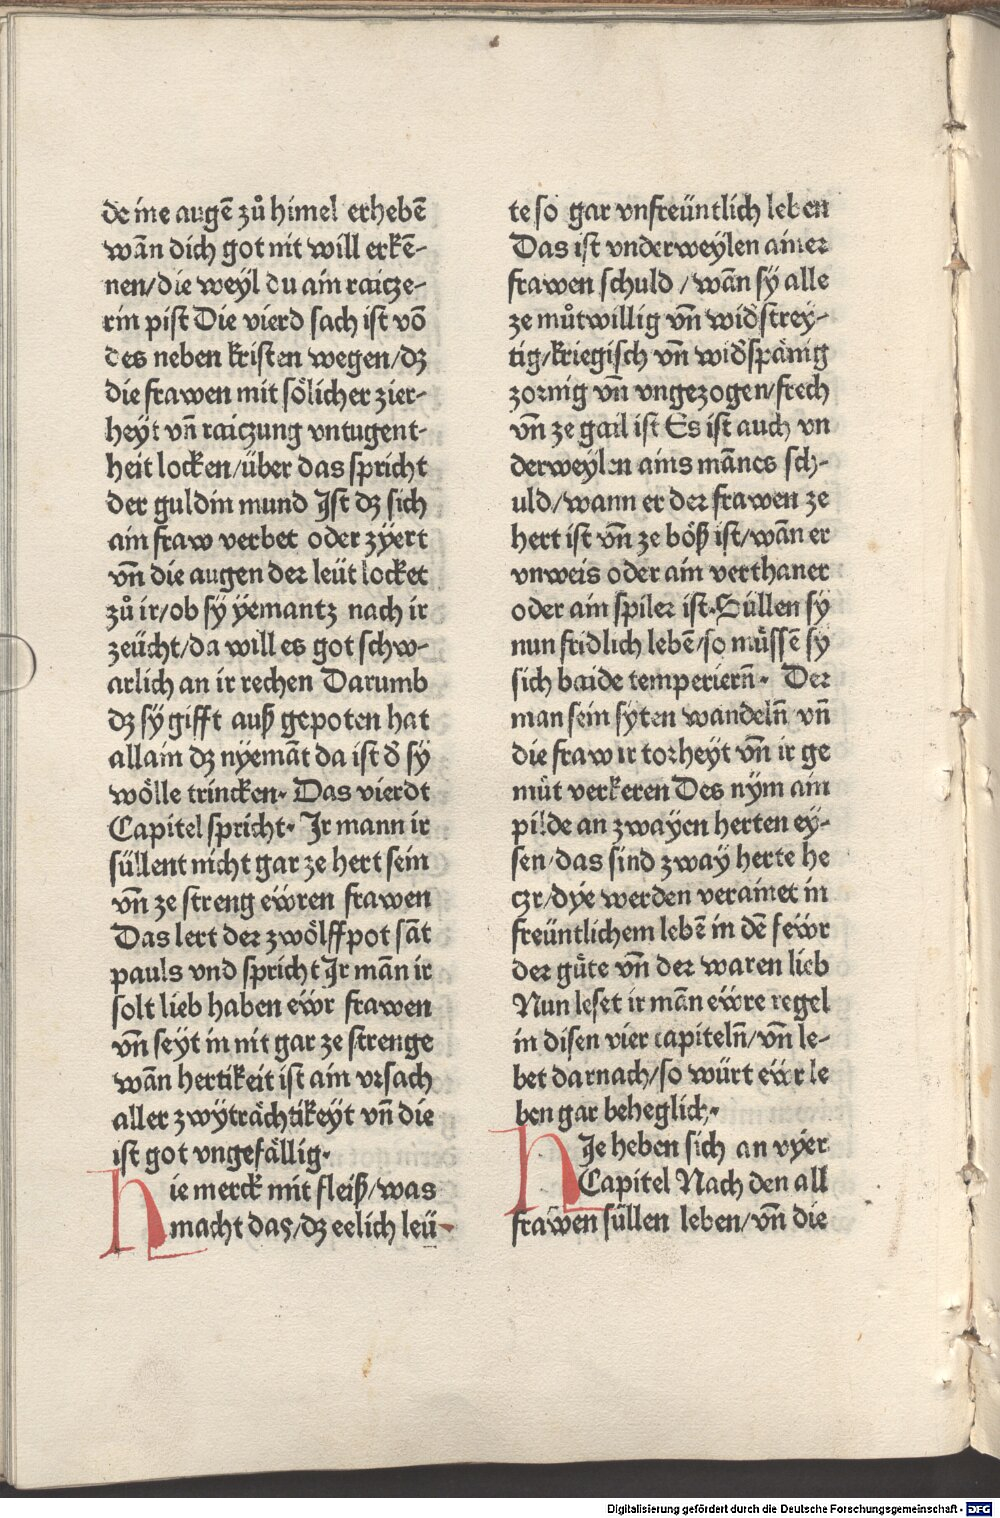 de ine augē zů himel erhebē
wān dich got nit will erkē-
nen/die weyl du ain raicze-
rin pist Die vierd sach ist vō
des neben kristen wegen/dꝫ
die frawen mit sölicher zier-
heyt vn̄ raiczung vntugent-
heit locken/über das spricht
der guldin mund Jst dꝫ sich
ain fraw verbet oder zÿert
vn̄ die augen der leüt locket
zů ir/ob sy ÿemantz nach ir
zeücht/da will es got schw-
arlich an ir rechen Darumb
dꝫ sÿ gifft auß gepoten hat
allain dꝫ nyemāt da ist d̄ sÿ
wölle trincken· Das vierdt
Capitel spricht· Jr mann ir
süllent nicht gar ze hert sein
vn̄ ze streng eẅren frawen
Das lert der zwölffpot sāt
pauls vnd spricht Jr mān ir
solt lieb haben eẅr frawen
vn̄ seyt in nit gar ze strenge
wān hertikeit ist ain vrsach
aller zwyträchtikeyt vn̄ die
ist got vngefällig·
hie merck mit fleiß/was
macht das/dꝫ eelich leü-
te so gar vnfreüntlich leben
Das ist vnderweylen ainer
frawen schuld/wān sÿ alle
ze můtwillig vn̄ wid̄strey-
tig/kriegisch vn̄ wid̄spänig
zornig vn̄ vngezogen/frech
vn̄ ze gail ist Es ist auch vn
derweylen ains mānes sch-
uld/wann er der frawen ze
hert ist vn̄ ze böß ist/wān er
vnweis oder ain verthaner
oder ain spiler ist·Süllen sÿ
nun fridlich lebē/so müssē sÿ
sich baide temperiern̄· Der
man sein syten wandeln̄ vn̄
die fraw ir torheyt vn̄ ir ge
müt verkeren Des nÿm ain
pilde an zwayen herten ey-
sen/das sind zwaÿ herte he
czr/dÿe werden verainet in
freüntlichem lebē in dē feẅr
der güte vn̄ der waren lieb
Nun leset ir mān eẅre regel
in disen vier capiteln̄/vn̄ le-
bet darnach/so würt eẅr le
ben gar beheglich·
hJe heben sich an vÿer
Capitel Nach den all
frawen süllen leben/vn̄ die
Digitalisierung gefördert durch die Deutsche Forschungsgemeinschaft - DFG